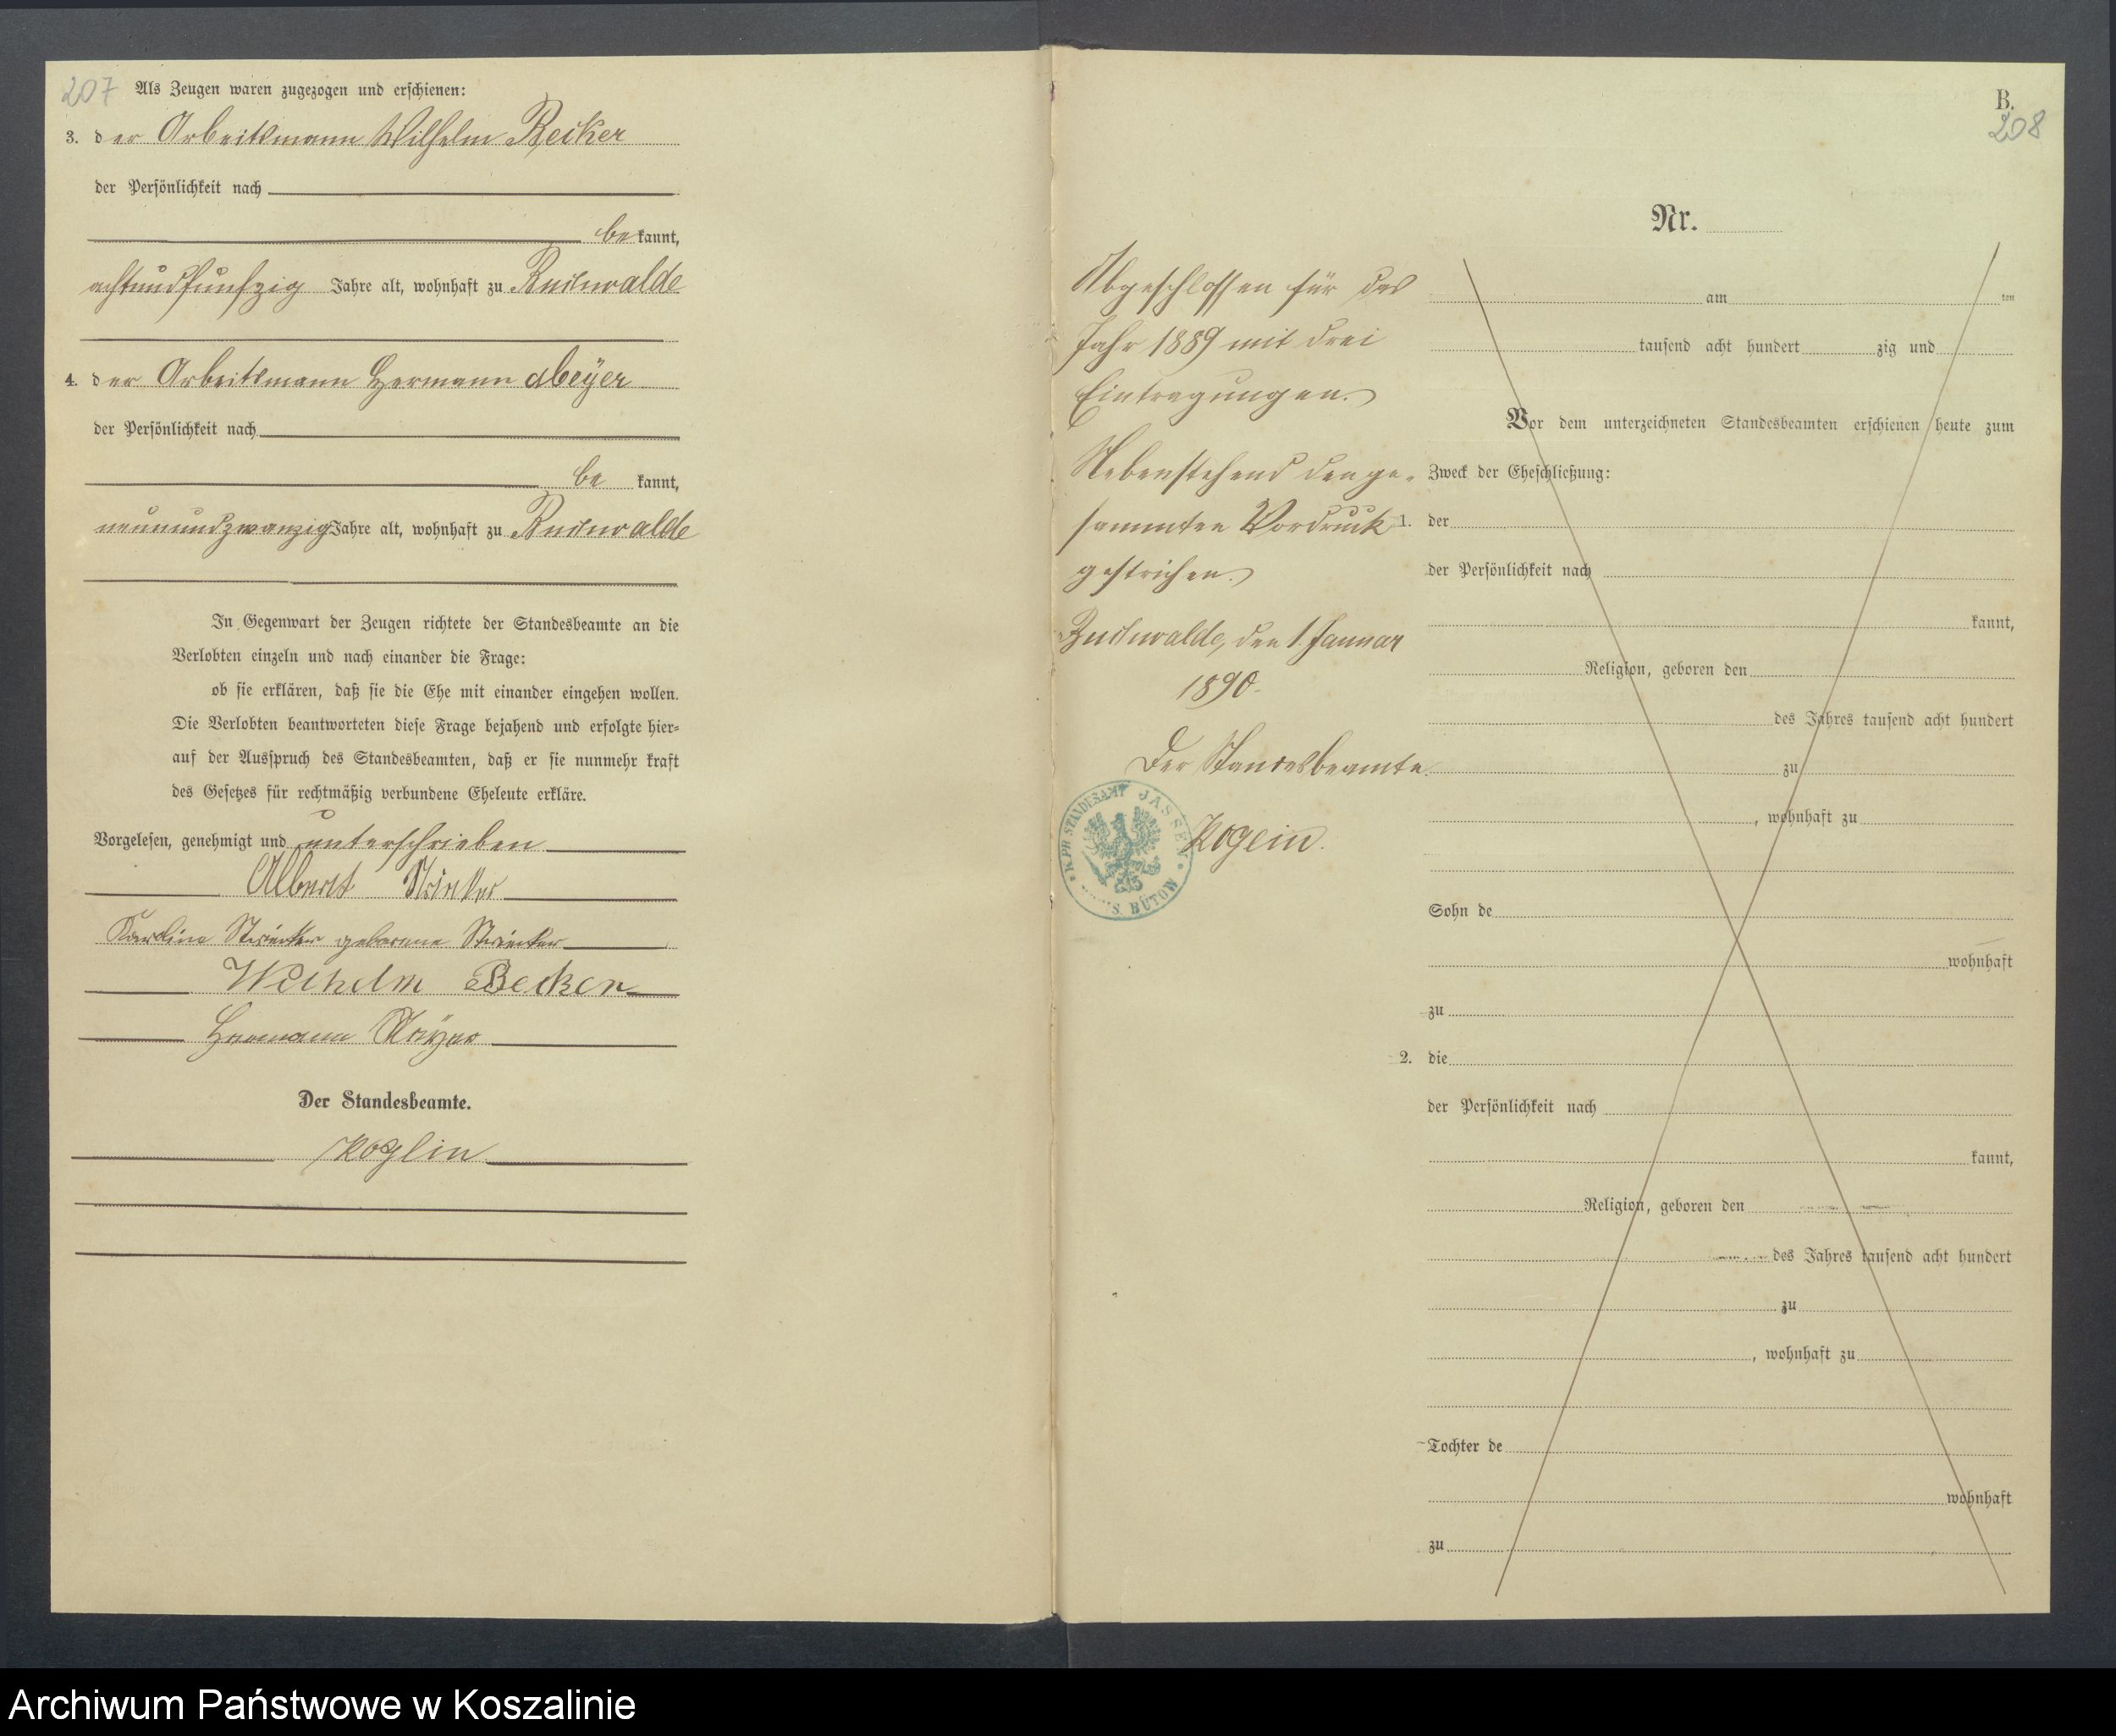 207
Als Zeugen waren zugezogen und erschienen:
3. der Arbeitsmann Wilhelm Becker
der Persönlichkeit nach
be kannt,
achtundfünfzig Jahre alt, wohnhaft zu
4. der Arbeitsmann Hermann
der Persönlichkeit nach
be kannt,
neunundzwanzig Jahre alt, wohnhaft zu
In Gegenwart der Zeugen richtete der Standesbeamte an die
Verlobten einzeln und nach einander die Frage:
ob sie erklären, daß sie die Ehe mit einander eingehen wollen.
Die Verlobten beantworteten diese Frage bejahend und erfolgte hier-
auf der Ausspruch des Standesbeamten, daß er sie nunmehr kraft
des Gesetzes für rechtmäßig verbundene Eheleute erkläre.
Vorgelesen, genehmigt und unterschrieben
Albert
geborene
Wilhelm Becker
Hermann
Der Standesbeamte.
Koglin
B.
208
Nr.
Abgeschlossen für das
Jahr 1889 mit drei
Eintragungen.
Nebenstehend den ge-
sammten Vordruck
gestrichen.
den 1. Januar
1890.
Der Standesbeamte.
K. PR. STANDESAMT JASSEN
S BÜTOW
am ten
tausend acht hundert zig und
Vor dem unterzeichneten Standesbeamten erschienen heute zum
Zweck der Eheschließung:
1. der
der Persönlichkeit nach
kannt,
Religion, geboren den
des Jahres tausend acht hundert
zu
, wohnhaft zu
Sohn de
wohnhaft
zu
2. die
der Persönlichkeit nach
kannt,
Religion, geboren den
des Jahres tausend acht hundert
zu
, wohnhaft zu
Tochter de
wohnhaft
zu
Archiwum Państwowe w Koszalinie